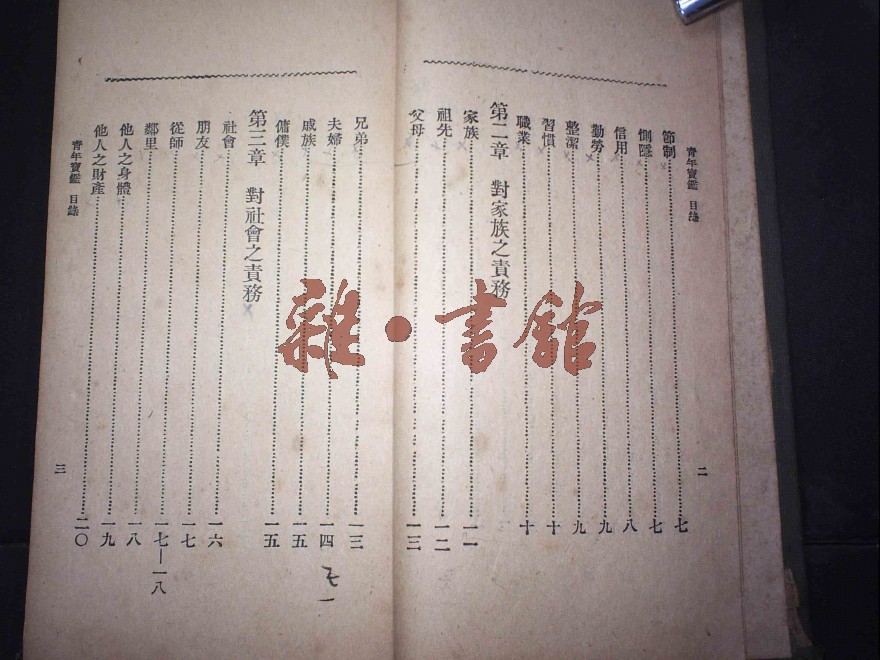 青年寶鑑 目錄 二
節制……七
惻隱……七
信用……八
勤勞……九
整潔……九
習慣……十
職業……十
第二章 對家族之責務
家族……一一
祖先……一二
父母……一三
兄弟……一三
夫婦……一四
戚族……一五
傭僕……一五
第三章 對社會之責務
社會……一六
朋友……一七
從師……一七—一八
鄰里……一八
他人之身體……一九
他人之財產……二〇
青年寶鑑 目錄 三
雜·書館